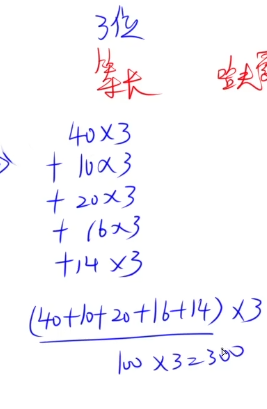 3位
等长
哈夫
40×3
+ 10×3
+ 20×3
+ 16×3
+14 ×3
(40+10+20+16+14) ×3
100 ×3=300